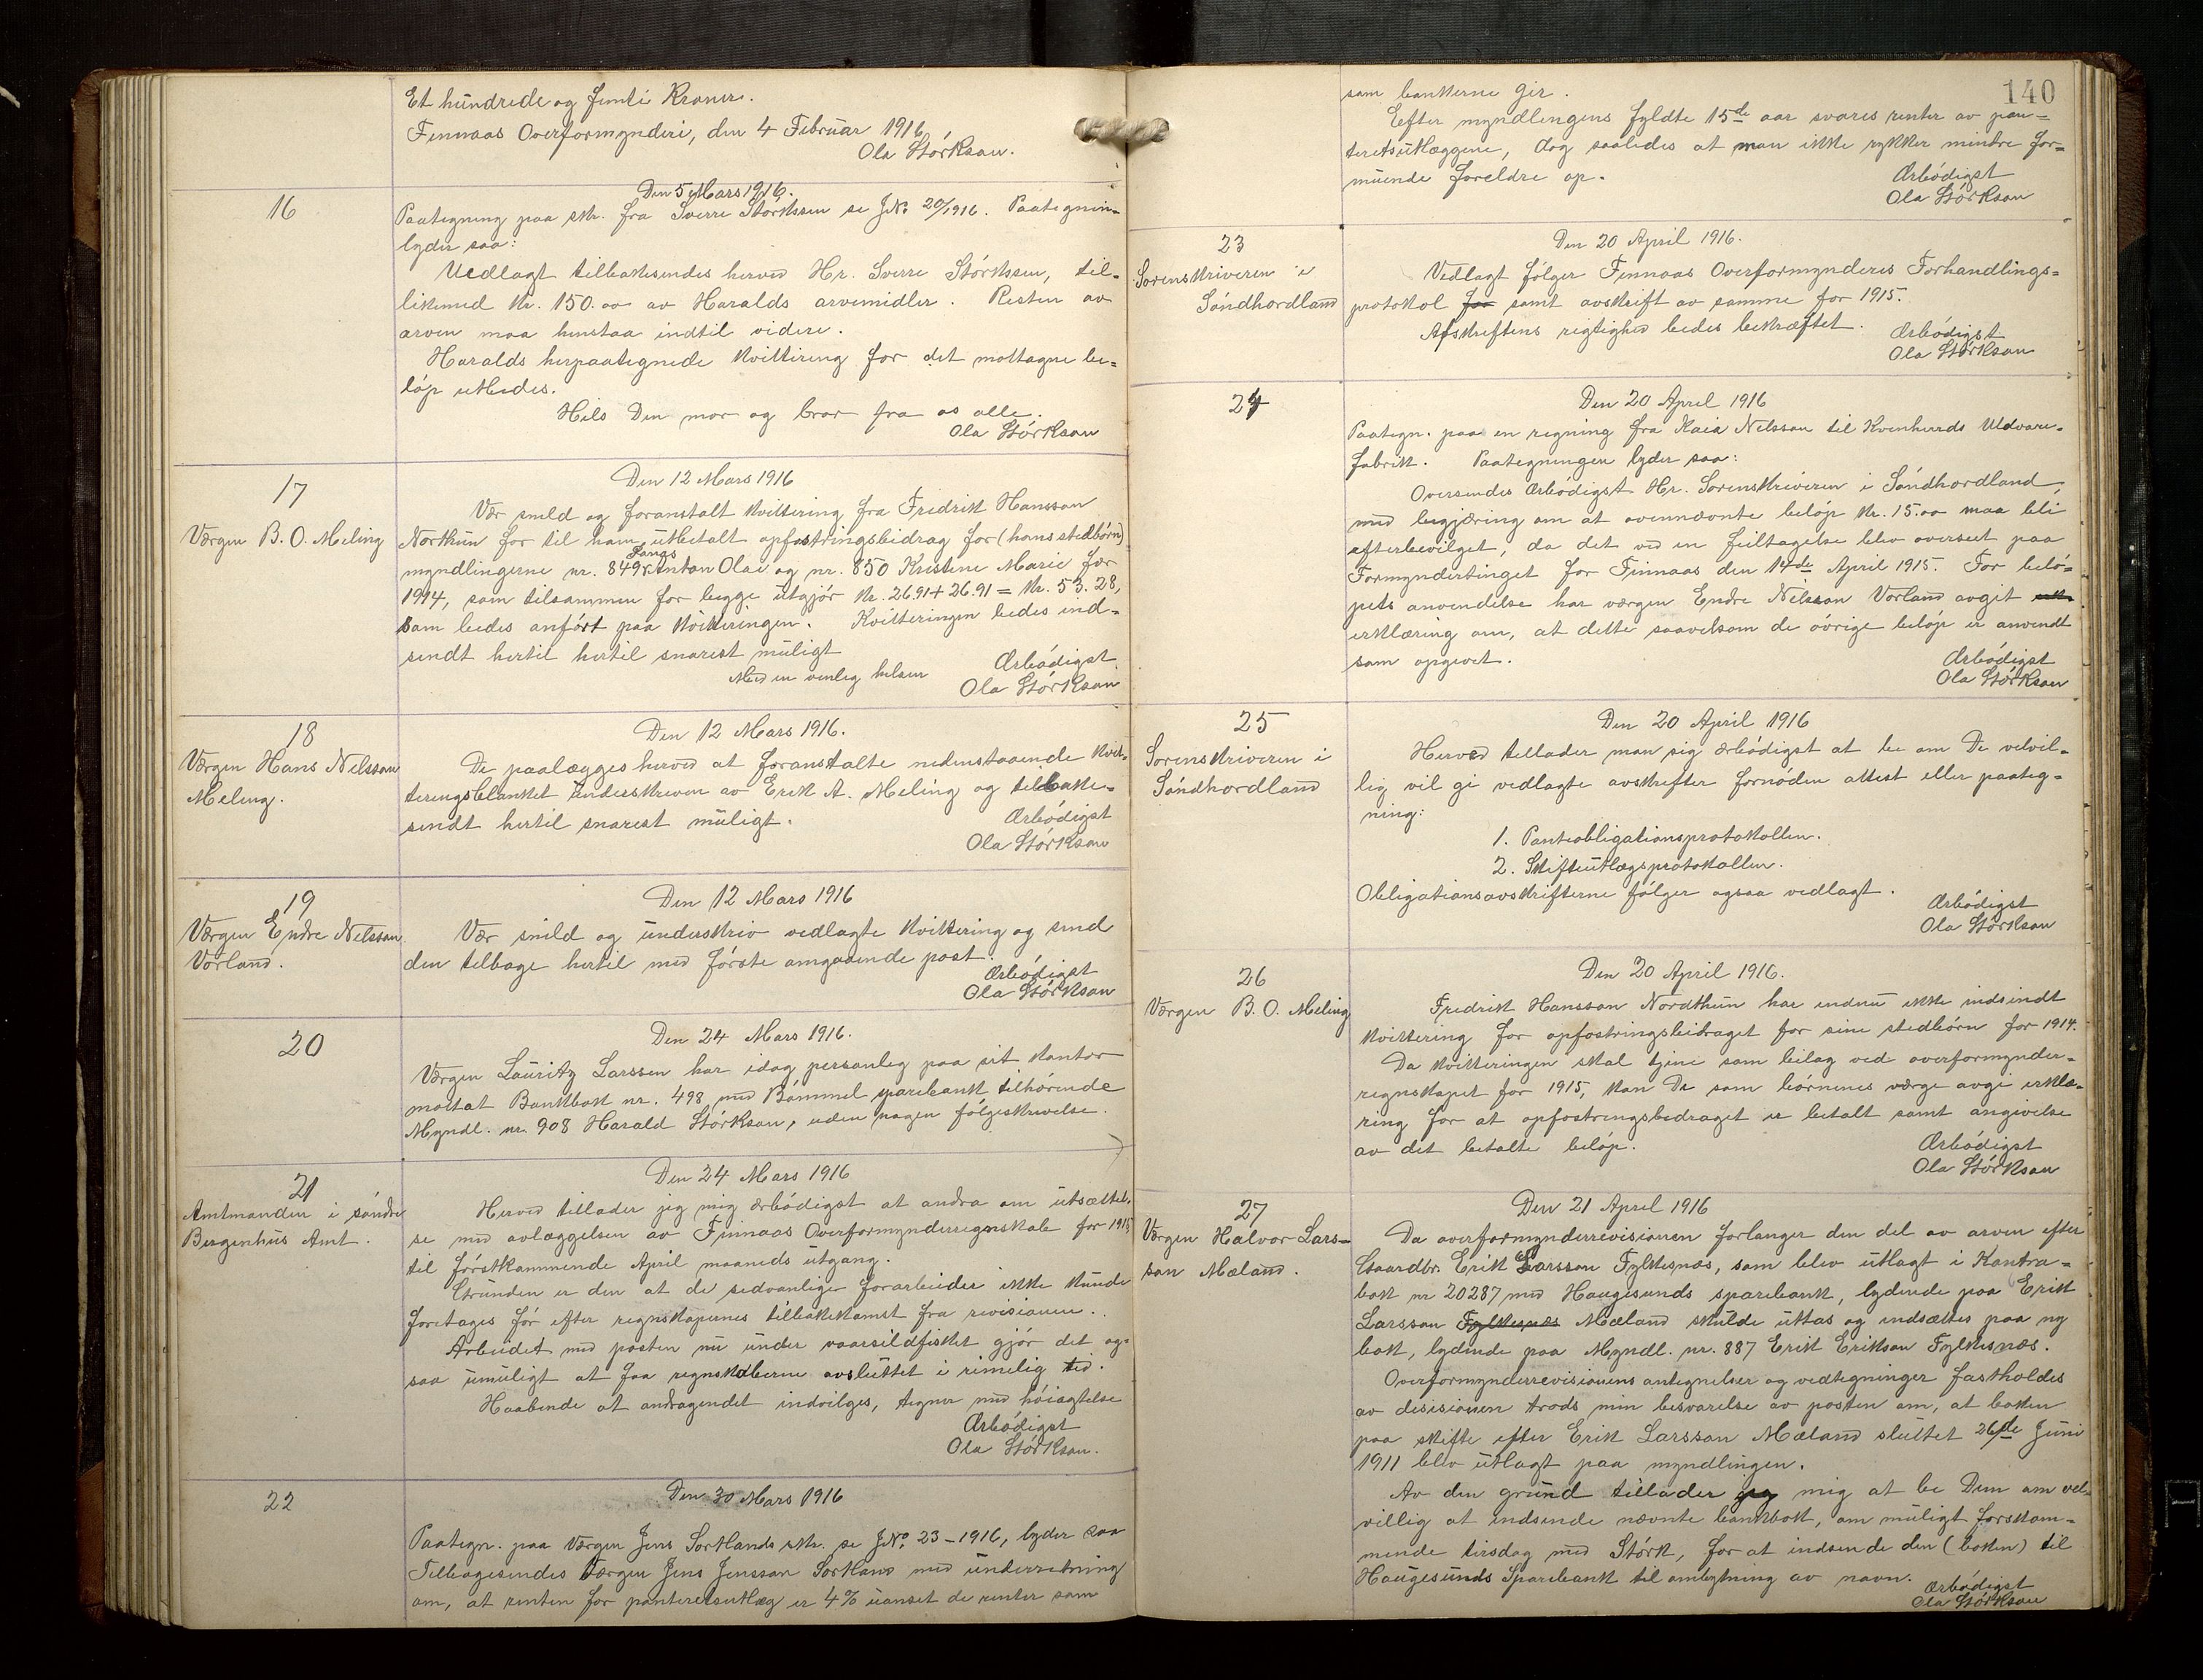 Et hundrede og femti Kroner.
Finnaas Overformynderi, den 4 Februar 1916
Ola Størkson.
16
Den 5 Mars 1916.
Paategning paa skr. fra Sverre Størkssen se JNo 20/1916. Paategnin-
lyder saa:
Vedlagt tilbakesendes herved Hr. Sverre Størkssen, til-
likemed kr. 150.00 av Haralds arvemidler. Resten av
arven maa henstaa indtil videre.
Haralds herpaategnede kvittering for det mottagne be-
løp utbedes.
Hils Din mor og bror fra os alle.
Ola Størkson
17
Værgen B. O. Meling
Den 12 Mars 1916
Vær snild og foranstalt kvittering fra Fredrik Hansson
Northun for til ham utbetalt opfostringsbidrag for (hans stedbörn)
myndlingerne nr. 849 Langs Anton Olai og nr. 850 Kristine Marie for
1914, som tilsammen for begge utgjör kr. 26.91 + 26.91 = kr. 53.28,
som bedes anfört paa kvitteringen. Kvitteringen bedes ind-
sendt hertil hertil snarest muligt
Med en venleg helsen
Ærbödigst
Ola Størkson
18
Værgen Hans Nelsson
Meling.
Den 12 Mars 1916.
De paalægges herved at foranstalte nedenstaaende kvit-
teringsblanket underskreven av Erik A. Meling og tilbake-
sendt hertil snarest muligt.
Ærbödigst
Ola Størkson
19
Værgen Endre Nelsson
Vorland.
Den 12 Mars 1916
Vær snild og underskriv vedlagte kvittering og send
den tilbage hertil med förste omgaaende post.
Ærbödigst
Ola Størkson
20
Den 24 Mars 1916.
Værgen Lauritz Larssen har idag personleg paa sit kontor
mottat Bankbok nr. 498 med Bömmel sparebank tilhörende
Myndl. nr. 908 Harald Størkson, uden nogen fölgeskrivelse.
21
Amtmanden i söndre
Bergenhus Amt.
Den 24 Mars 1916
Herved tillader jeg mig ærbödigst at andra om utsættel-
se med avlæggelsen av Finnaas Overformynderregnskab for 1915
til förstkommende April maaneds utgang.
Grunden er den at de sedvanlige forarbeider ikke kunde
foretages för efter regnskapernes tilbakekomst fra revisionen.
Arbeidet med posten nu under vaarsildfisket gjör det og-
saa umuligt at faa regnskaberne avsluttet i rimelig tid.
Haabende at andragendet indvilges, tegner med höiagtelse
Ærbödigst
Ola Størkson.
22
Den 30 Mars 1916
Paategn. paa Værgen Jens Sortlands skr. se JNo. 23-1916, lyder saa
Tilbagesendes Værgen Jens Jensson Sortland med underretning
om, at renten for panteretsutlæg er 4% uanset de renter som
140
som bankerne gir.
Eefter myndlingens fyldte 15de aar svares renter av pan-
teretsutlæggene, dog saaledes at man ikke rykker mindre for-
muende foreldre op.
Ærbödigst
Ola Størkson
23
Sorenskriveren i
Söndhordland
Den 20 April 1916.
Vedlagt fölger Finnaas Overformynderes Forhandlings-
protokol for samt avskrift av samme for 1915.
Afskriftens rigtighed bedes bekræftet.
Ærbödigst
Ola Størkson
24
Den 20 April 1916
Paategn. paa en regning fra Kaia Nelsson til Kvinherrds Uldvare-
fabrik. Paategningen lyder saa:
Oversendes Ærbödigst Hr. Sorenskriveren i Söndhordland,
med begjæring om at ovennævnte belöp kr. 15.00 maa bli
efterbevilget, da det ved en feiltagelse blev overseet paa
Formyndertinget for Finnaas den 14de April 1915. For belö-
pets anvendelse har værgen Endre Nelsson Vorland avgit
erklæring om, at dette saavelsom de övrige belöp er anvendt
som opgivet.
Ærbödigst
Ola Størkson
25
Sorenskriveren i
Söndhordland
Den 20 April 1916
Herved tillader man sig ærbödigst at be om De velvil-
lig vil gi vedlagte avskrifter fornöden attest eller paateg-
ning:
1. Panteobligationsprotokollen.
2. Skifteutlægsprotokollen.
Obligationsavskrifterne fölger ogsaa vedlagt.
Ærbödigst
Ola Størkson
26
Værgen B. O. Meling
Den 20 April 1916.
Fredrik Hansson Nordthun har endnu ikke indsendt
kvittering for opfostringsbidraget for sine stedbörn for 1914.
Da kvitteringen skal tjene som bilag ved overformynder-
regnskapet for 1915, kan De som börnenes værge avgi erklæ-
ring for at opfostringsbedraget er betalt samt angivelse
av det betalte belöp.
Ærbödigst
Ola Størkson
27
Værgen Halvor Lars-
son Mæland.
Den 21 April 1916
Da overformynderrevisionen forlanger den del av arven efter
Gaardbr. Erik Larsson Fylkesnæs, som blev utlagt i Kontra-
bok nr 20287 med Haugesunds sparebank, lydende paa Erik
Larsson Fylkesnæs Mæland skulde uttas og indsættes paa ny
bok, lydende paa Myndl. nr. 887 Erik Erikson Fylkesnæs.
Overformynderrevisionens antegnelser og vedtegninger fastholdes
av desisionen trods min besvarelse av posten om, at boken
paa skifte efter Erik Larsson Mæland sluttet 26de Juni
1911 blev utlagt paa myndlingen.
Av den grund tillader jeg mig at be Dem om vel-
villig at indsende nævnte bankbok, om muligt forstkom-
mende tirsdag med Störk, for at indsende den (boken) til
Haugesunds Sparebank til ombytning av navn.
Ærbödigst
Ola Størkson